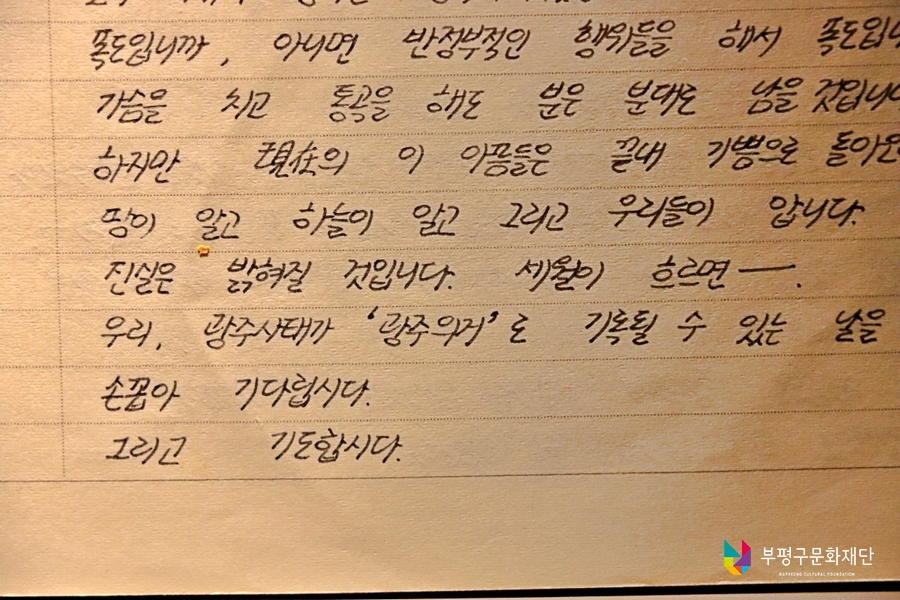 폭도입니까, 아니면 반정부적인 행위들을 해서 폭도입니
가슴을 치고 통곡을 해도 분은 분대로 남을 것입니
하지만 現在의 이 아픔들은 끝내 기쁨으로 돌아온
땅이 알고 하늘이 알고 그리고 우리들이 압니다.
진실은 밝혀질 것입니다. 세월이 흐르면 ―.
우리, 광주사태가 '광주의거'로 기록될 수 있는 날을
손꼽아 기다립시다.
그리고 기도합시다.
부평구문화재단
BUPYEONG CULTURAL FOUNDATION